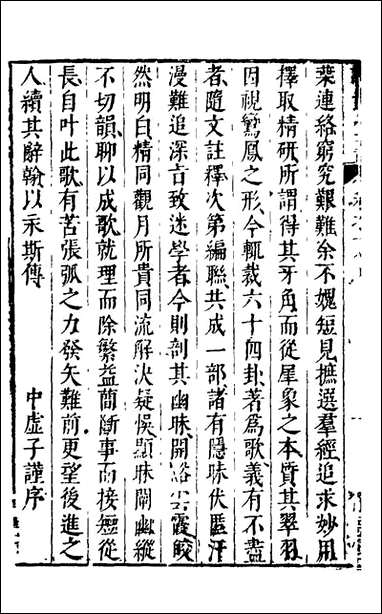 葉連絡窮究艱難余不媿短見摭選羣經追求妙用
擇取精研所謂得其牙角而從犀象之本質其翠羽
因視鸞鳳之形今輒裁六十四卦著爲歌義有不盡
者隨文註釋次第編聯共成一部諸有隱昧伏匿汗
漫難追深言致迷學者今則剖其幽昧開豁雲霞皎
然明白精同觀月所貴同流解決疑悞顯昧闡幽縱
不切韻聊以成歌就理而除繁益蕳斷事而接短從
長自叶此歌有苦張弧之力發矢難前更望後進之
人續其辭翰以永斯傳
中虛子謹序